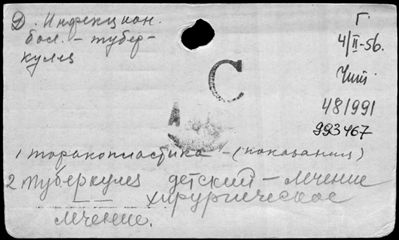 Д. Инфекцион.
бол. - тубер-
кулез
Г.
4/II-56.
Чит
C
А
481991
993467
1 торакопластика - (показания)
2 туберкулез детский - лечение
хирургическое
лечение.